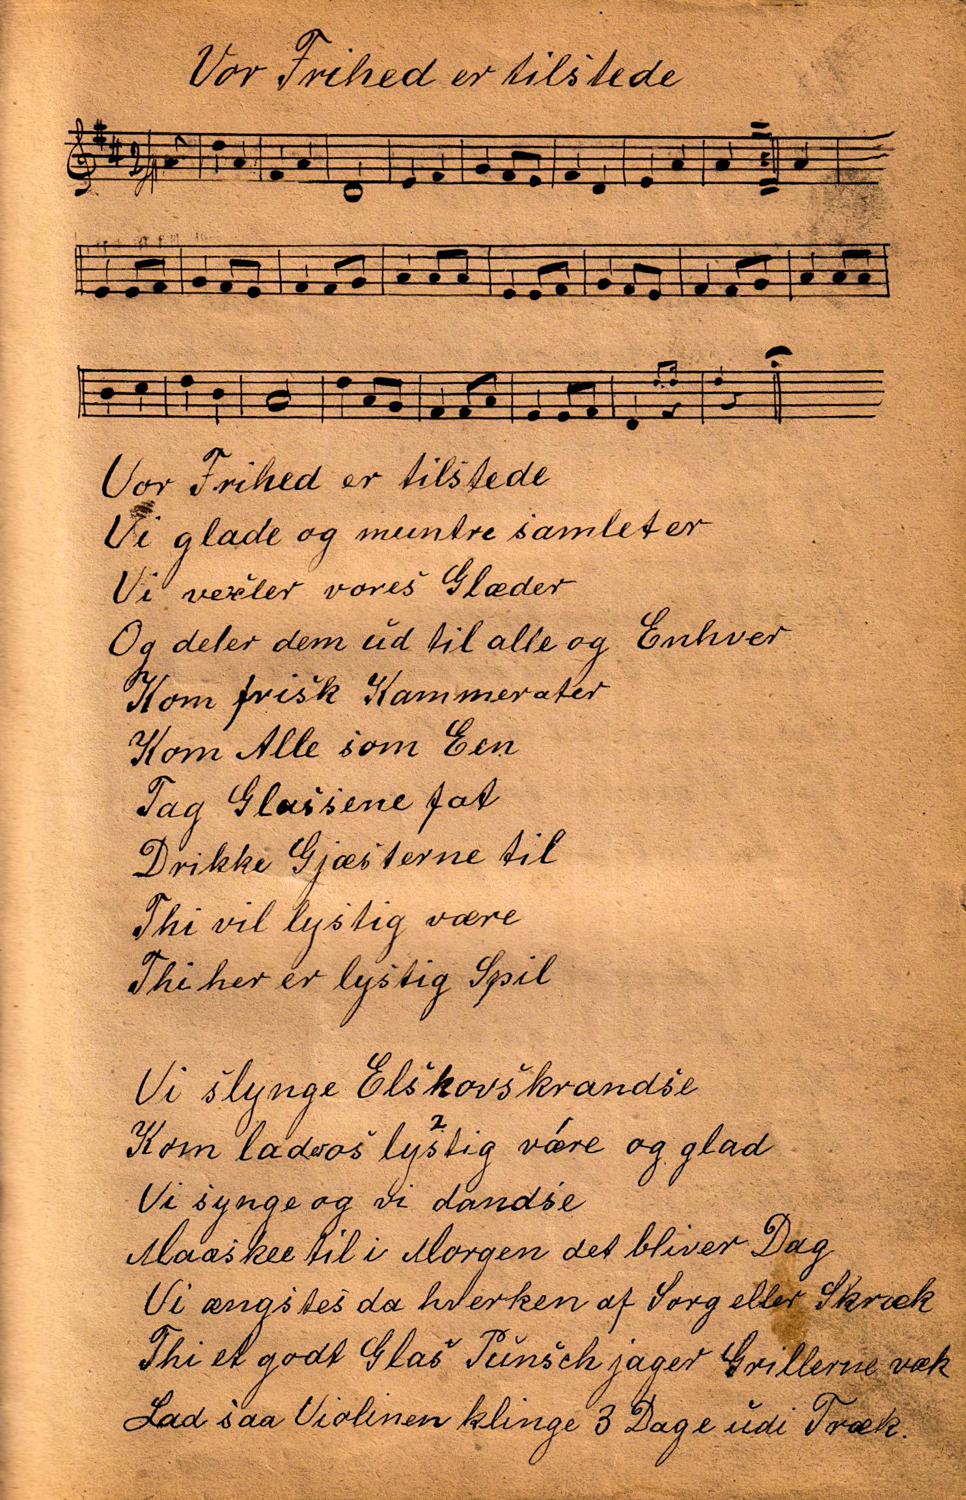 Vor Frihed er tilstede
Vor Frihed er tilstede
Vi glade og muntre samlet er
Vi vexler vores Glæder
Og deler dem ud til alle og Enhver
Kom frisk Kammerater
Kom Alle som Een
Tag Glassene fat
Drikke Gjæsterne til
Thi vil lystig være
Thi her er lystig Spil
Vi slynge Elskovskrandse
Kom lad os lystig være og glad
2
Vi synge og vi dandse
Maaskee til i Morgen det bliver Dag
Vi ængstes da hverken af Sorg eller Skræk
Thi et godt Glas Punsch jager Grillerne væk
Lad saa Violinen klinge 3 Dage udi Træk.